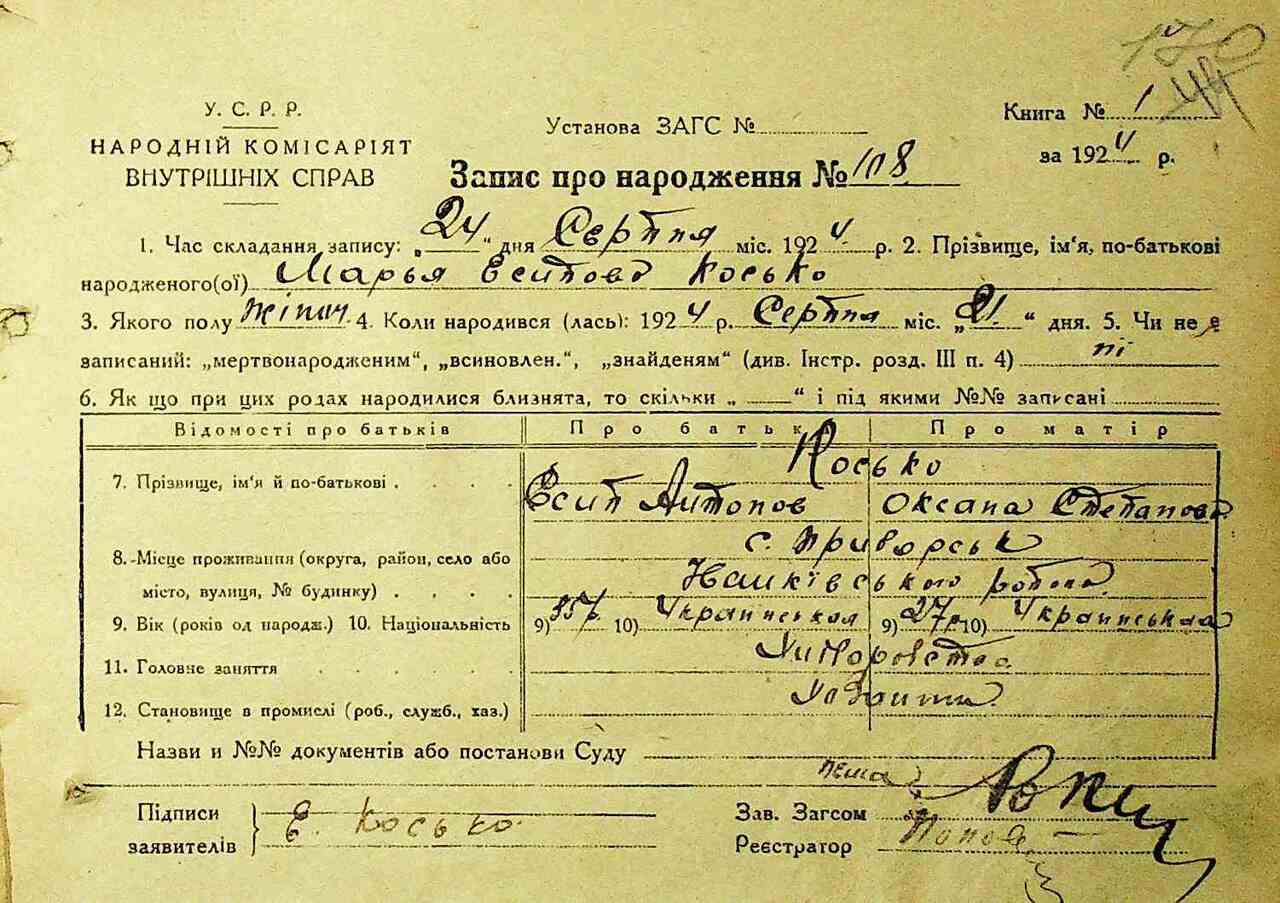 170
У. С. Р. Р.
НАРОДНІЙ КОМІСАРІЯТ
ВНУТРІШНІХ СПРАВ
Установа ЗАГС №
Книга № 1
за 1924 р.
Запис про народження № 108
1. Час складання запису: „24“ дня Серпня міс. 1924 р. 2. Прізвище, ім'я, по-батькові
народженого(ої) Марья Есипова Косько
3. Якого полу жіноч. 4. Коли народився (лась): 1924 р. Серпня міс. „21“ дня. 5. Чи не є
записаний: „мертвонародженим“, „всиновлен.“, „знайденям“ (див. Інстр. розд. III п. 4) ні
6. Як що при цих родах народилися близнята, то скільки „ “ і під якими №№ записані
Відомості про батьків Про батька Про матір
Косько
7. Прізвище, ім'я й по-батькові Есип Антонов Оксана Степанова
8.-Місце проживання (округа, район, село або с. Приворськ
місто, вулиця, № будинку)
9. Вік (років од народж.) 10. Національність 9) 35р. 10) Украинськая 9) 27р. 10) Украинськая
11. Головне заняття
12. Становище в промислі (роб., служб., хаз.)
Назви и №№ документів або постанови Суду
Підписи
заявителів
Е. Косько
Зав. Загсом
Реєстратор